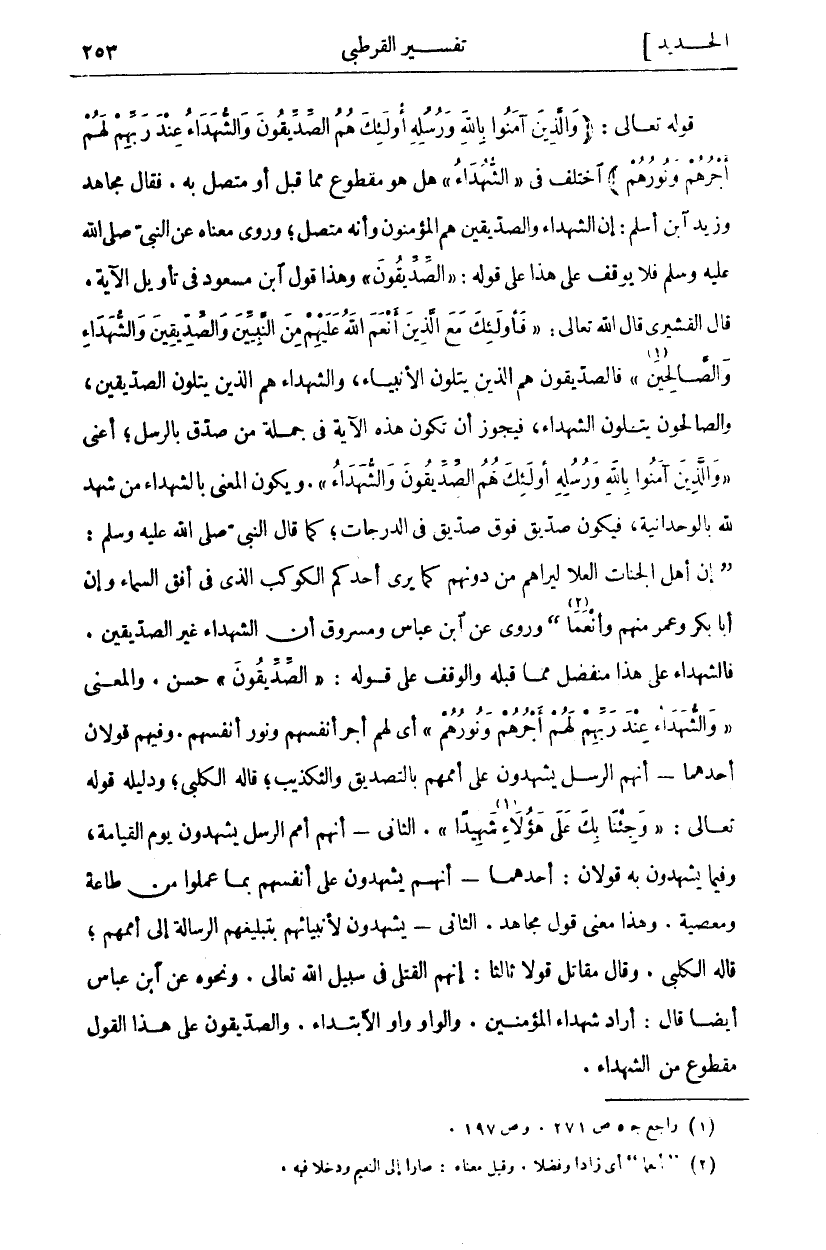 الحـديد] تفسـير القرطبى ٢٥٣
قوله تعـالى : ﴿وَالَّذِينَ آمَنُوا بِاللهِ وَرُسُلِهِ أُولَئِكَ هُمُ الصِّدِّيقُونَ وَالشُّهَدَاءُ عِنْدَ رَبِّهِمْ لَهُمْ
أَجْرُهُمْ وَنُورُهُمْ﴾ ٱختلف فى « الشُّهَدَاءُ » هل هو مقطوع مما قبل أو متصل به . فقال مجاهد
وزيد ٱبن أسلم : إن الشهداء والصديقين هم المؤمنون وأنه متصل ؛ وروى معناه عن النبىّ صلى الله
عليه وسلم فلا يوقف على هذا على قوله : « الصِّدِّيقُونَ » وهذا قول ٱبن مسعود فى تأويل الآية .
قال القشيرى قال الله تعالى : « فَأُولَئِكَ مَعَ الَّذِينَ أَنْعَمَ اللهُ عَلَيْهِمْ مِنَ النَّبِيِّينَ وَالصِّدِّيقِينَ وَالشُّهَدَاءِ
وَالصَّـالِحِينَ (١) » فالصدّيقون هم الذين يتلون الأنبيـاء، والشهداء هم الذين يتلون الصديقين،
والصالحون يتـلون الشهداء، فيجوز أن تكون هذه الآية فى جمـلة من صدّق بالرسل ؛ أعنى
«وَالَّذِينَ آمَنُوا بِاللهِ وَرُسُلِهِ أُولَئِكَ هُمُ الصِّدِّيقُونَ وَالشُّهَدَاءُ » . ويكون المعنى بالشهداء من شهد
لله بالوحدانية، فيكون صدّيق فوق صدّيق فى الدرجات ؛ كما قال النبىّ صلى الله عليه وسلم :
" إن أهل الجنات العلا ليراهم من دونهم كما يرى أحدكم الكوكب الذى فى أفق السماء وإن
أبا بكر وعمر منهم وأَنْعَمَا (٢) " وروى عن ٱبن عباس ومسروق أن الشهداء غير الصدّيقين .
فالشهداء على هذا منفصل ممـا قبله والوقف على قـوله : « الصِّدِّيقُونَ » حسن . والمعـنى
« وَالشُّهَدَاءُ عِنْدَ رَبِّهِمْ لَهُمْ أَجْرُهُمْ وَنُورُهُمْ » أى لهم أجر أنفسهم ونور أنفسهم . وفيهم قولان
أحدهمـا — أنهم الرسـل يشهدون على أممهم بالتصديق والتكذيب ؛ قاله الكلبى ؛ ودليله قوله
تعـالى : « وَجِئْنَا بِكَ عَلَى هَؤُلَاءِ (١) شَهِيدًا » . الثانى — أنهم أمم الرسل يشهدون يوم القيامة،
وفيما يشهدون به قولان : أحدهمـا — أنهـم يشهدون على أنفسهم بمـا عملوا من طاعة
ومعصية . وهذا معنى قول مجاهد . الثانى — يشهدون لأنبيائهم بتبليغهم الرسالة إلى أممهم ؛
قاله الكلبى . وقال مقاتل قولا ثالثا : إنهم القتلى فى سبيل الله تعالى . ونحوه عن ٱبن عباس
أيضـا قال : أراد شهداء المؤمنـين . والواو واو الٱبتداء . والصدّيقون على هـذا القول
مقطوع من الشهداء .
(١) راجع جـ ٥ ص ٢٧١ . وص ١٩٧ .
(٢) "أنعما" أى زادا وفضلا . وقيل معناه : صارا إلى النعيم ودخلا فيه .